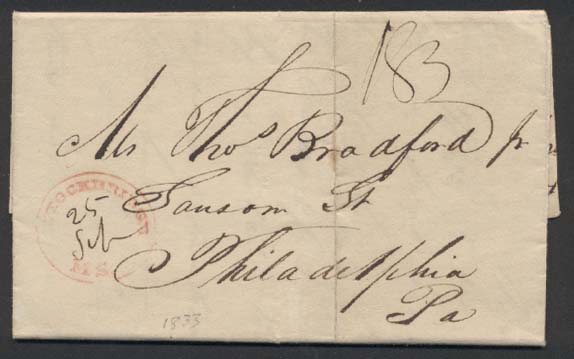 183
Mr Thos Bradford Jr
Sansom St
Philadelphia
Pa
STOCKBRIDGE
25
Feb
MS
1833